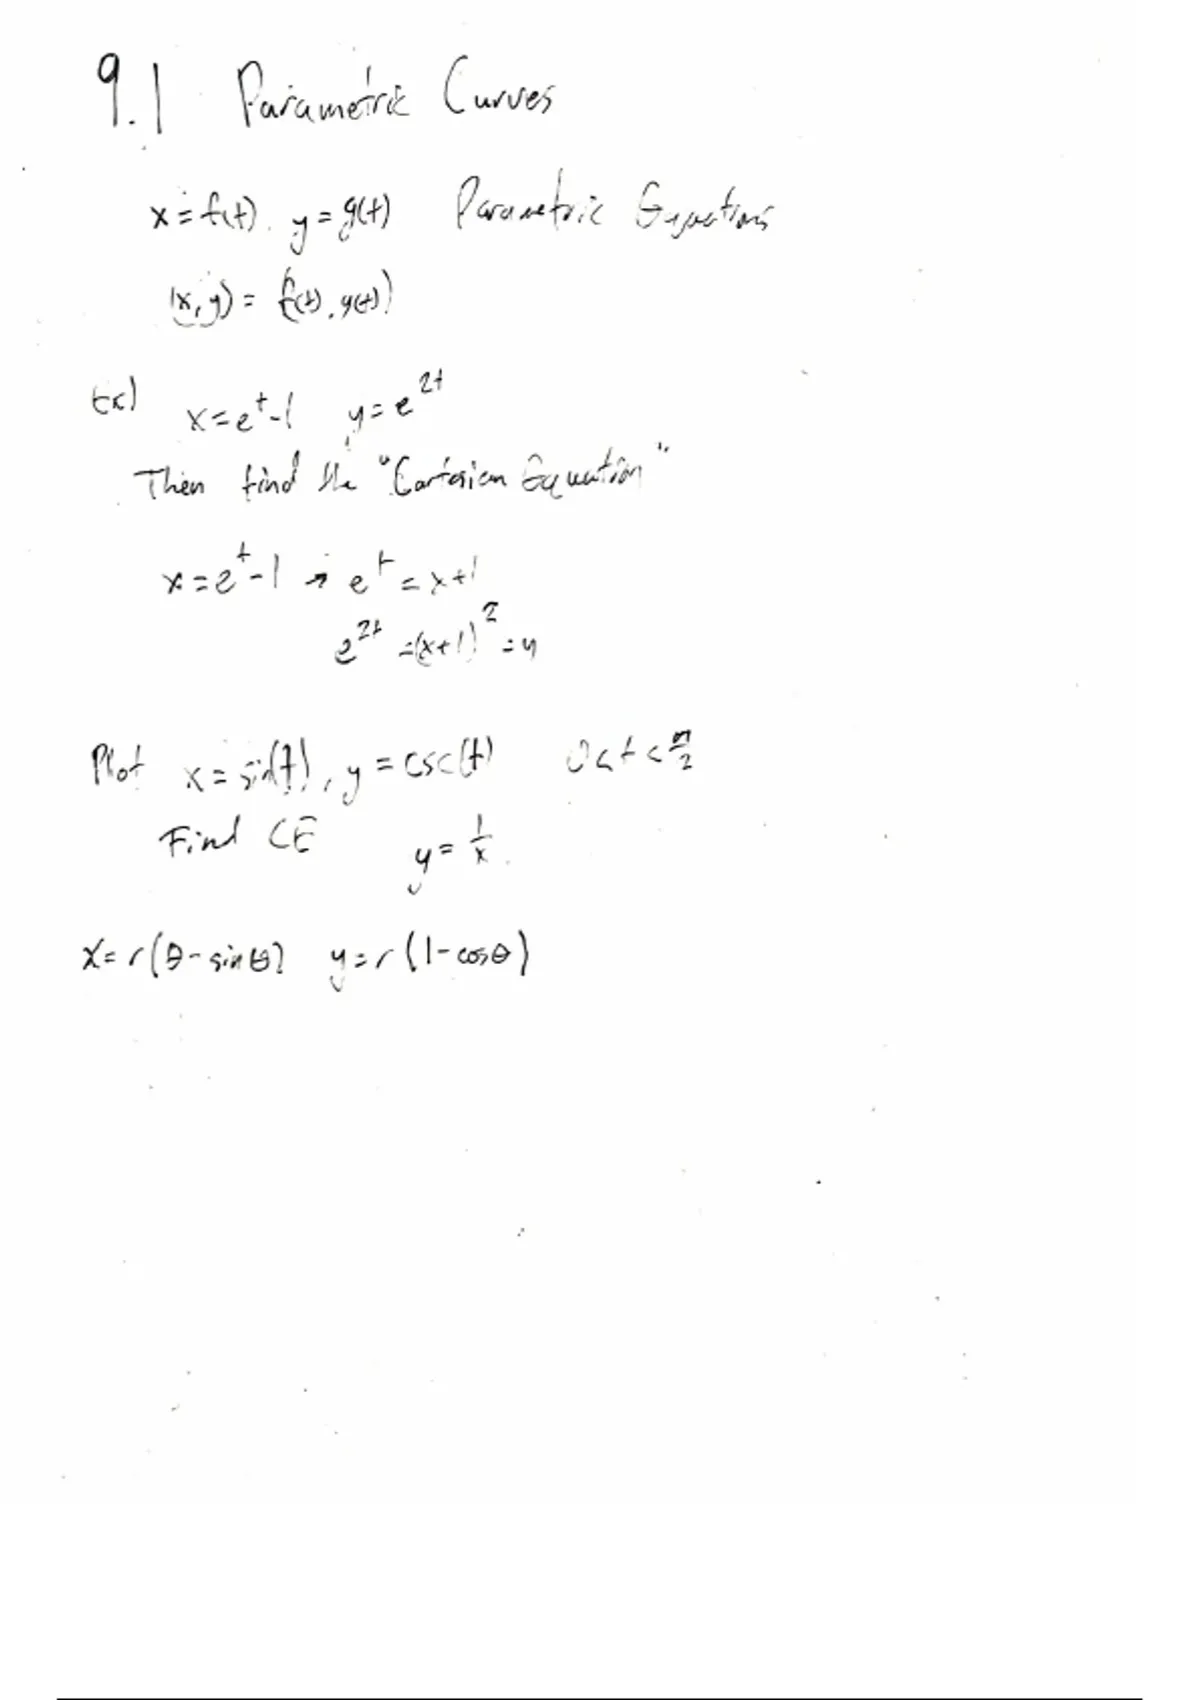 9.1 Parametric Curves
x = f(t), y = g(t) Parametric Equations
(x, y) = (f(t), g(t))
Ex) x = e^t - 1 y = e^{2t}
Then find the "Cartesian Equation"
x = e^t - 1 → e^t = x + 1
e^{2t} = (x+1)^2 = y
Plot x = sin(t), y = csc(t) 0 < t < π/2
Find CE y = 1/x.
x = r(θ - sinθ) y = r(1 - cosθ)